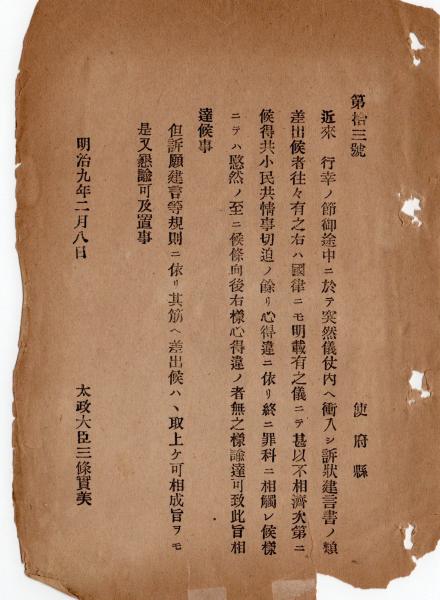 第拾三號
使府縣
近來　行幸ノ節御途中ニ於テ突然儀仗內ヘ衝入シ訴狀建言書ノ類
差出候者往々有之右ハ國律ニモ明載有之儀ニテ甚以不相濟次第ニ
候得共小民共情事切迫ノ餘リ心得違ニ依リ終ニ罪科ニ相觸レ候樣
ニテハ愍然ノ至ニ候條向後右樣心得違ノ者無之樣諭達可致此旨相
達候事
但訴願建言等規則ニ依リ其筋ヘ差出候ハヽ取上ケ可相成旨ヲモ
是又懇諭可及置事
明治九年二月八日
太政大臣三條實美